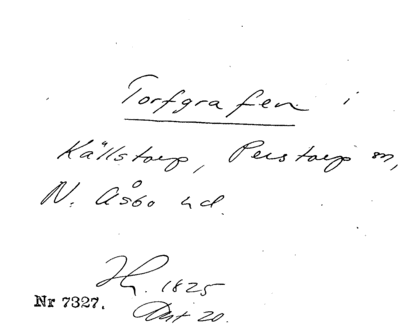 Torfgrafen i
Källstorp, Perstorp sn,
N. Åsbo hd.
1825
Nr 7327.
20.